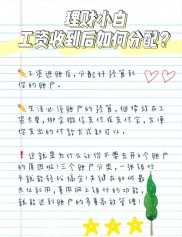 理财小白
工资收到后如何分配？
工资进账后，分配好预算和
你的账户。
生活必须账户的预算，继续放在工
资卡里，绑定微信支付或支付宝，方便
你支出的付款方式都可以。
这就是为什么让你不要去开6个账户
的原因啦！三个账户分类，一张银行
卡就能轻松搞定！关键在如何最
大化利用，善用网上银行的功能，
就能达到账户的多重高效管理！